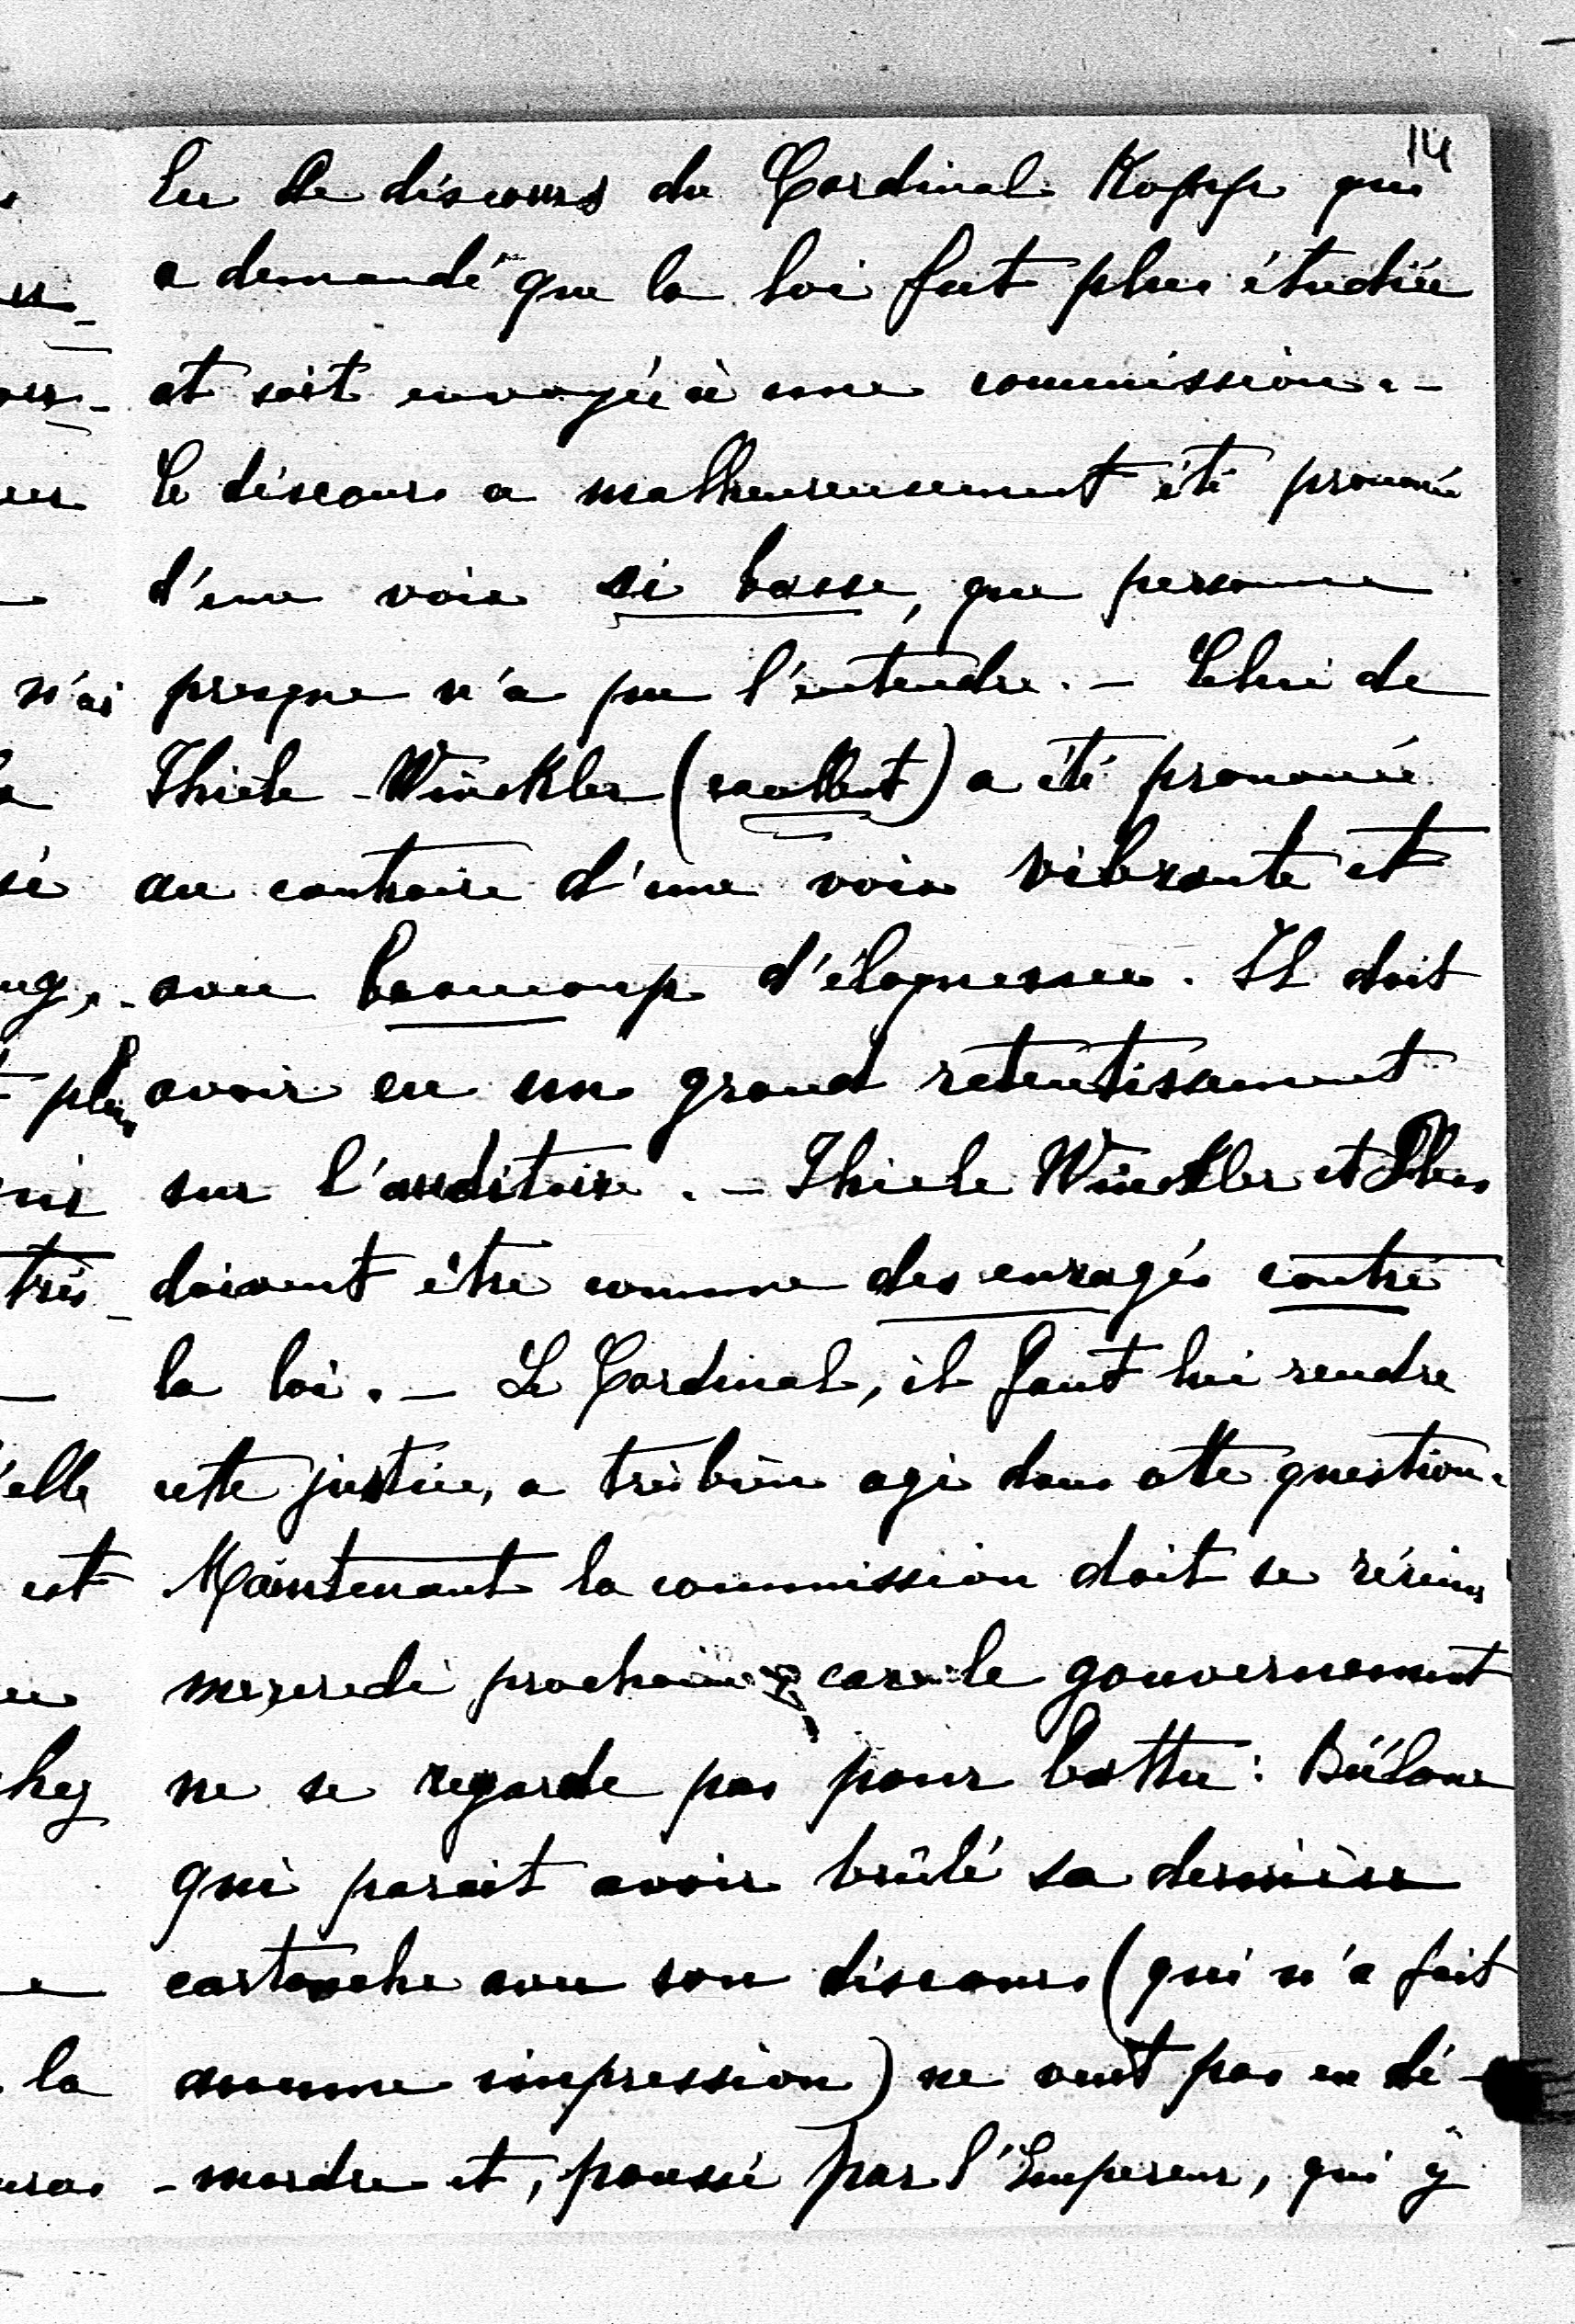 14
lu le discours du Cardinal Kopp qui
a demandé que la loi fut plus étudiée
et soit envoyée à une commission. -
Ce discours a malheureusement été prononcé
d'une voix si basse, que personne
presque n'a pu l'entendre. - Celui de
Thiele-Winckler (excellent) a été prononcé
au contraire d'une voix vibrante et
avec beaucoup d'éloquence. Il doit
avoir eu un grand retentissement
sur l'auditoire. - Thiele Winckler et
doivent être comme des enragés contre
la loi. - Le Cardinal, il faut lui rendre
cette justice, a très bien agi dans cette question.
Maintenant la commission doit se réunir
mercredi prochain car le gouvernement
ne se regarde pas pour battu : Bülow
qui parait avoir brûlé sa dernière
cartouche avec son discours (qui n'a fait
aucune impression) ne veut pas en dé-
-mordre et, poussé par l'Empereur, qui y